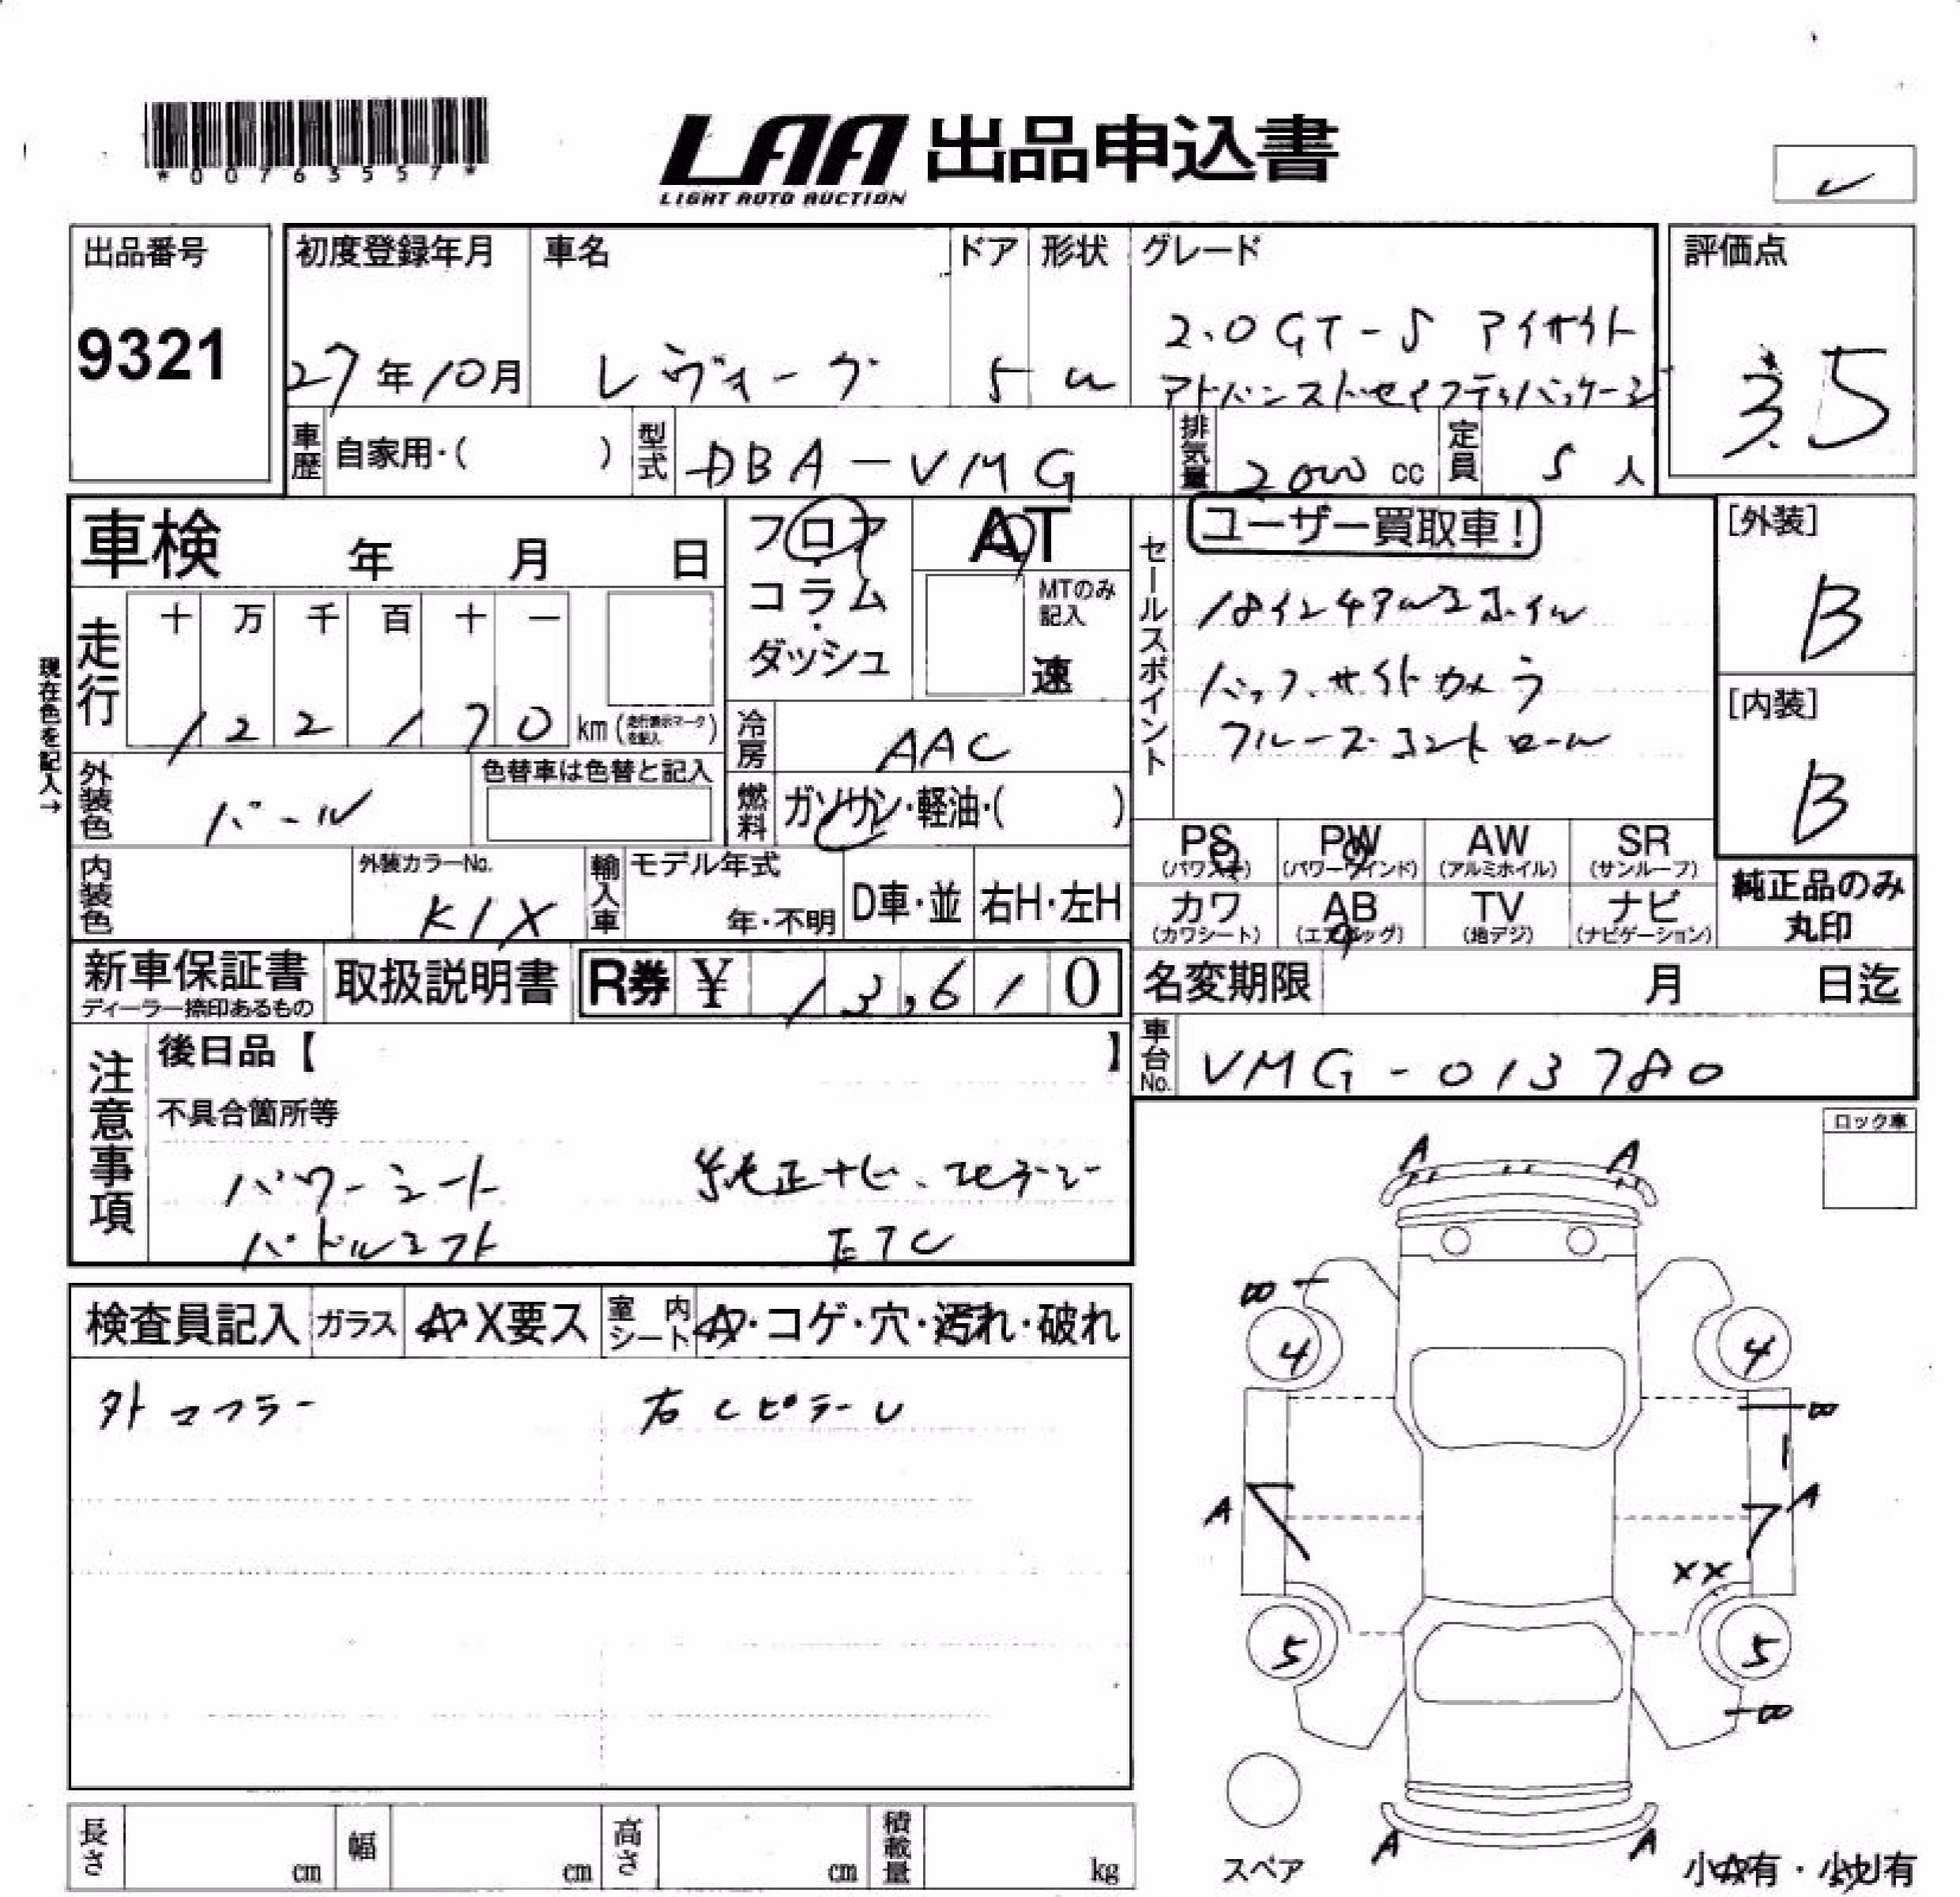 *00763557*
LAA 出品申込書
LIGHT AUTO AUCTION
出品番号
9321
初度登録年月
27年10月
車名
レヴォーグ
ドア
5
形状
W
グレード
2.0GT-S アイサイト
アドバンストセイフティパッケージ
評価点
3.5
車歴
自家用・( )
型式
DBA-VMG
排気量
2000 cc
定員
5 人
車検 年 月 日
走行
十 万 千 百 十 一
122170 km (走行表示マークを記入)
現在色を記入→
フロア・コラム・ダッシュ
AT
MTのみ記入
速
冷房
AAC
燃料
ガソリン・軽油・( )
セールスポイント
ユーザー買取車!
18インチアルミホイル
バック.サイドカメラ
クルーズコントロール
[外装]
B
[内装]
B
外装色
パール
色替車は色替と記入
内装色
外装カラーNo.
K1X
輸入車
モデル年式
年・不明
D車・並
右H・左H
PS
(パワステ)
PW
(パワーウインド)
AW
(アルミホイル)
SR
(サンルーフ)
カワ
(カワシート)
AB
(エアバッグ)
TV
(地デジ)
ナビ
(ナビゲーション)
純正品のみ
丸印
新車保証書
ディーラー捺印あるもの
取扱説明書
R券 ¥ 13,610
名変期限 月 日迄
車台No.
VMG-013780
注意事項
後日品【 】
不具合箇所等
パワーシート 純正ナビ.地デジ
パドルシフト ETC
ロック車
検査員記入
ガラス
A・X要ス
室内シート
A・コゲ・穴・汚れ・破れ
外マフラー 右CピラーU
A A
4 4
A A
XX
5 5
A A
スペア
小A有・小U有
長さ cm
幅 cm
高さ cm
積載量 kg